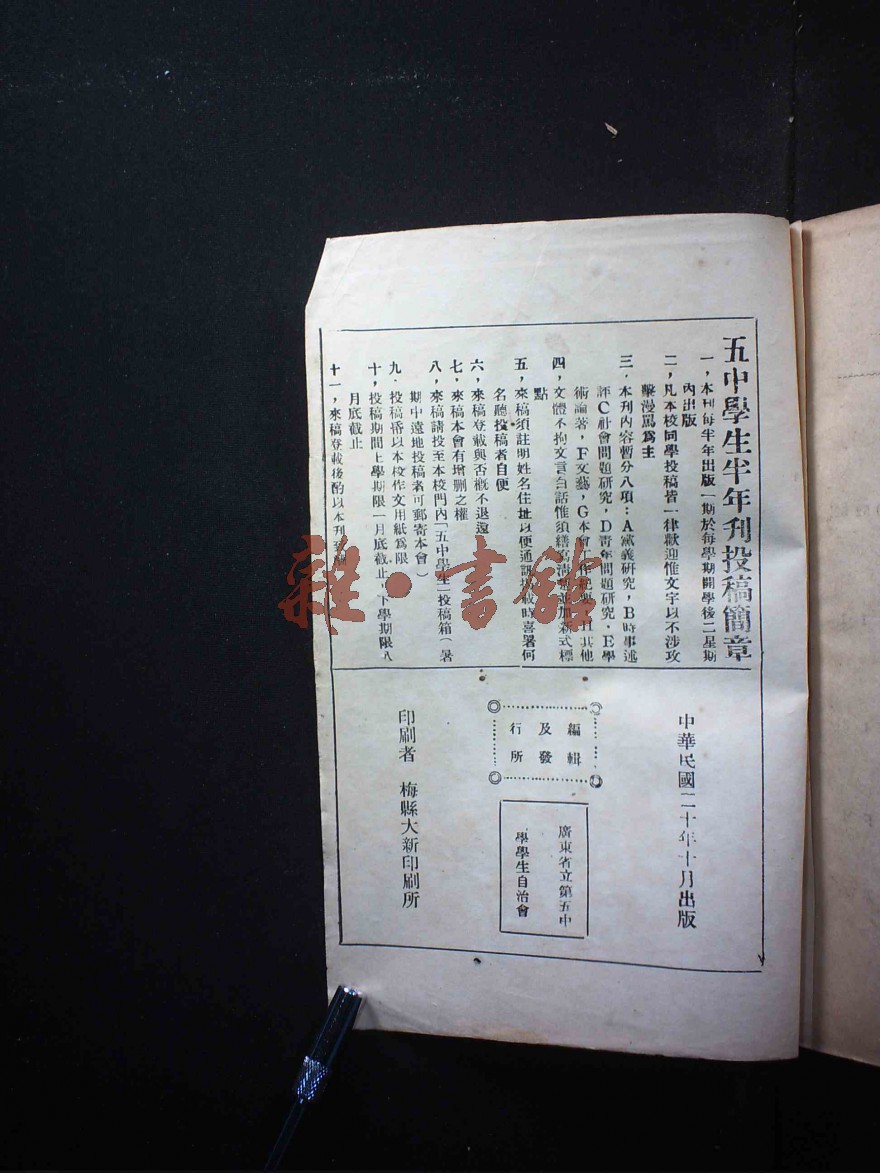 五中學生半年刊投稿簡章
一，本刊每半年出版一期於每學期開學後二星期
內出版
二，凡本校同學投稿皆一律歡迎惟文字以不涉攻
擊漫罵爲主
三．本刊內容暫分八項：A黨義研究，B時事述
評C社會問題研究，D靑年問題研究．E學
術論著，F文藝，G本會工作紀要H其他
四，文體不拘文言白話惟須繕寫淸楚並加新式標
點
五，來稿須註明姓名住址以便通訊登載時喜署何
名聽投稿者自便
六，來稿登載與否槪不退還
七，來稿本會有增刪之權
八，來稿請投至本校門內「五中學生」投稿箱（暑
期中遠地投稿者可郵寄本會）
九．投稿者以本校作文用紙爲限
十，投稿期間上學期限一月底截止，下學期限八
月底截止
十一，來稿登載後酌以本刊
中華民國二十年十月出版
編輯
及發
行所
廣東省立第五中
學學生自治會
印刷者　梅縣大新印刷所
雜·書館